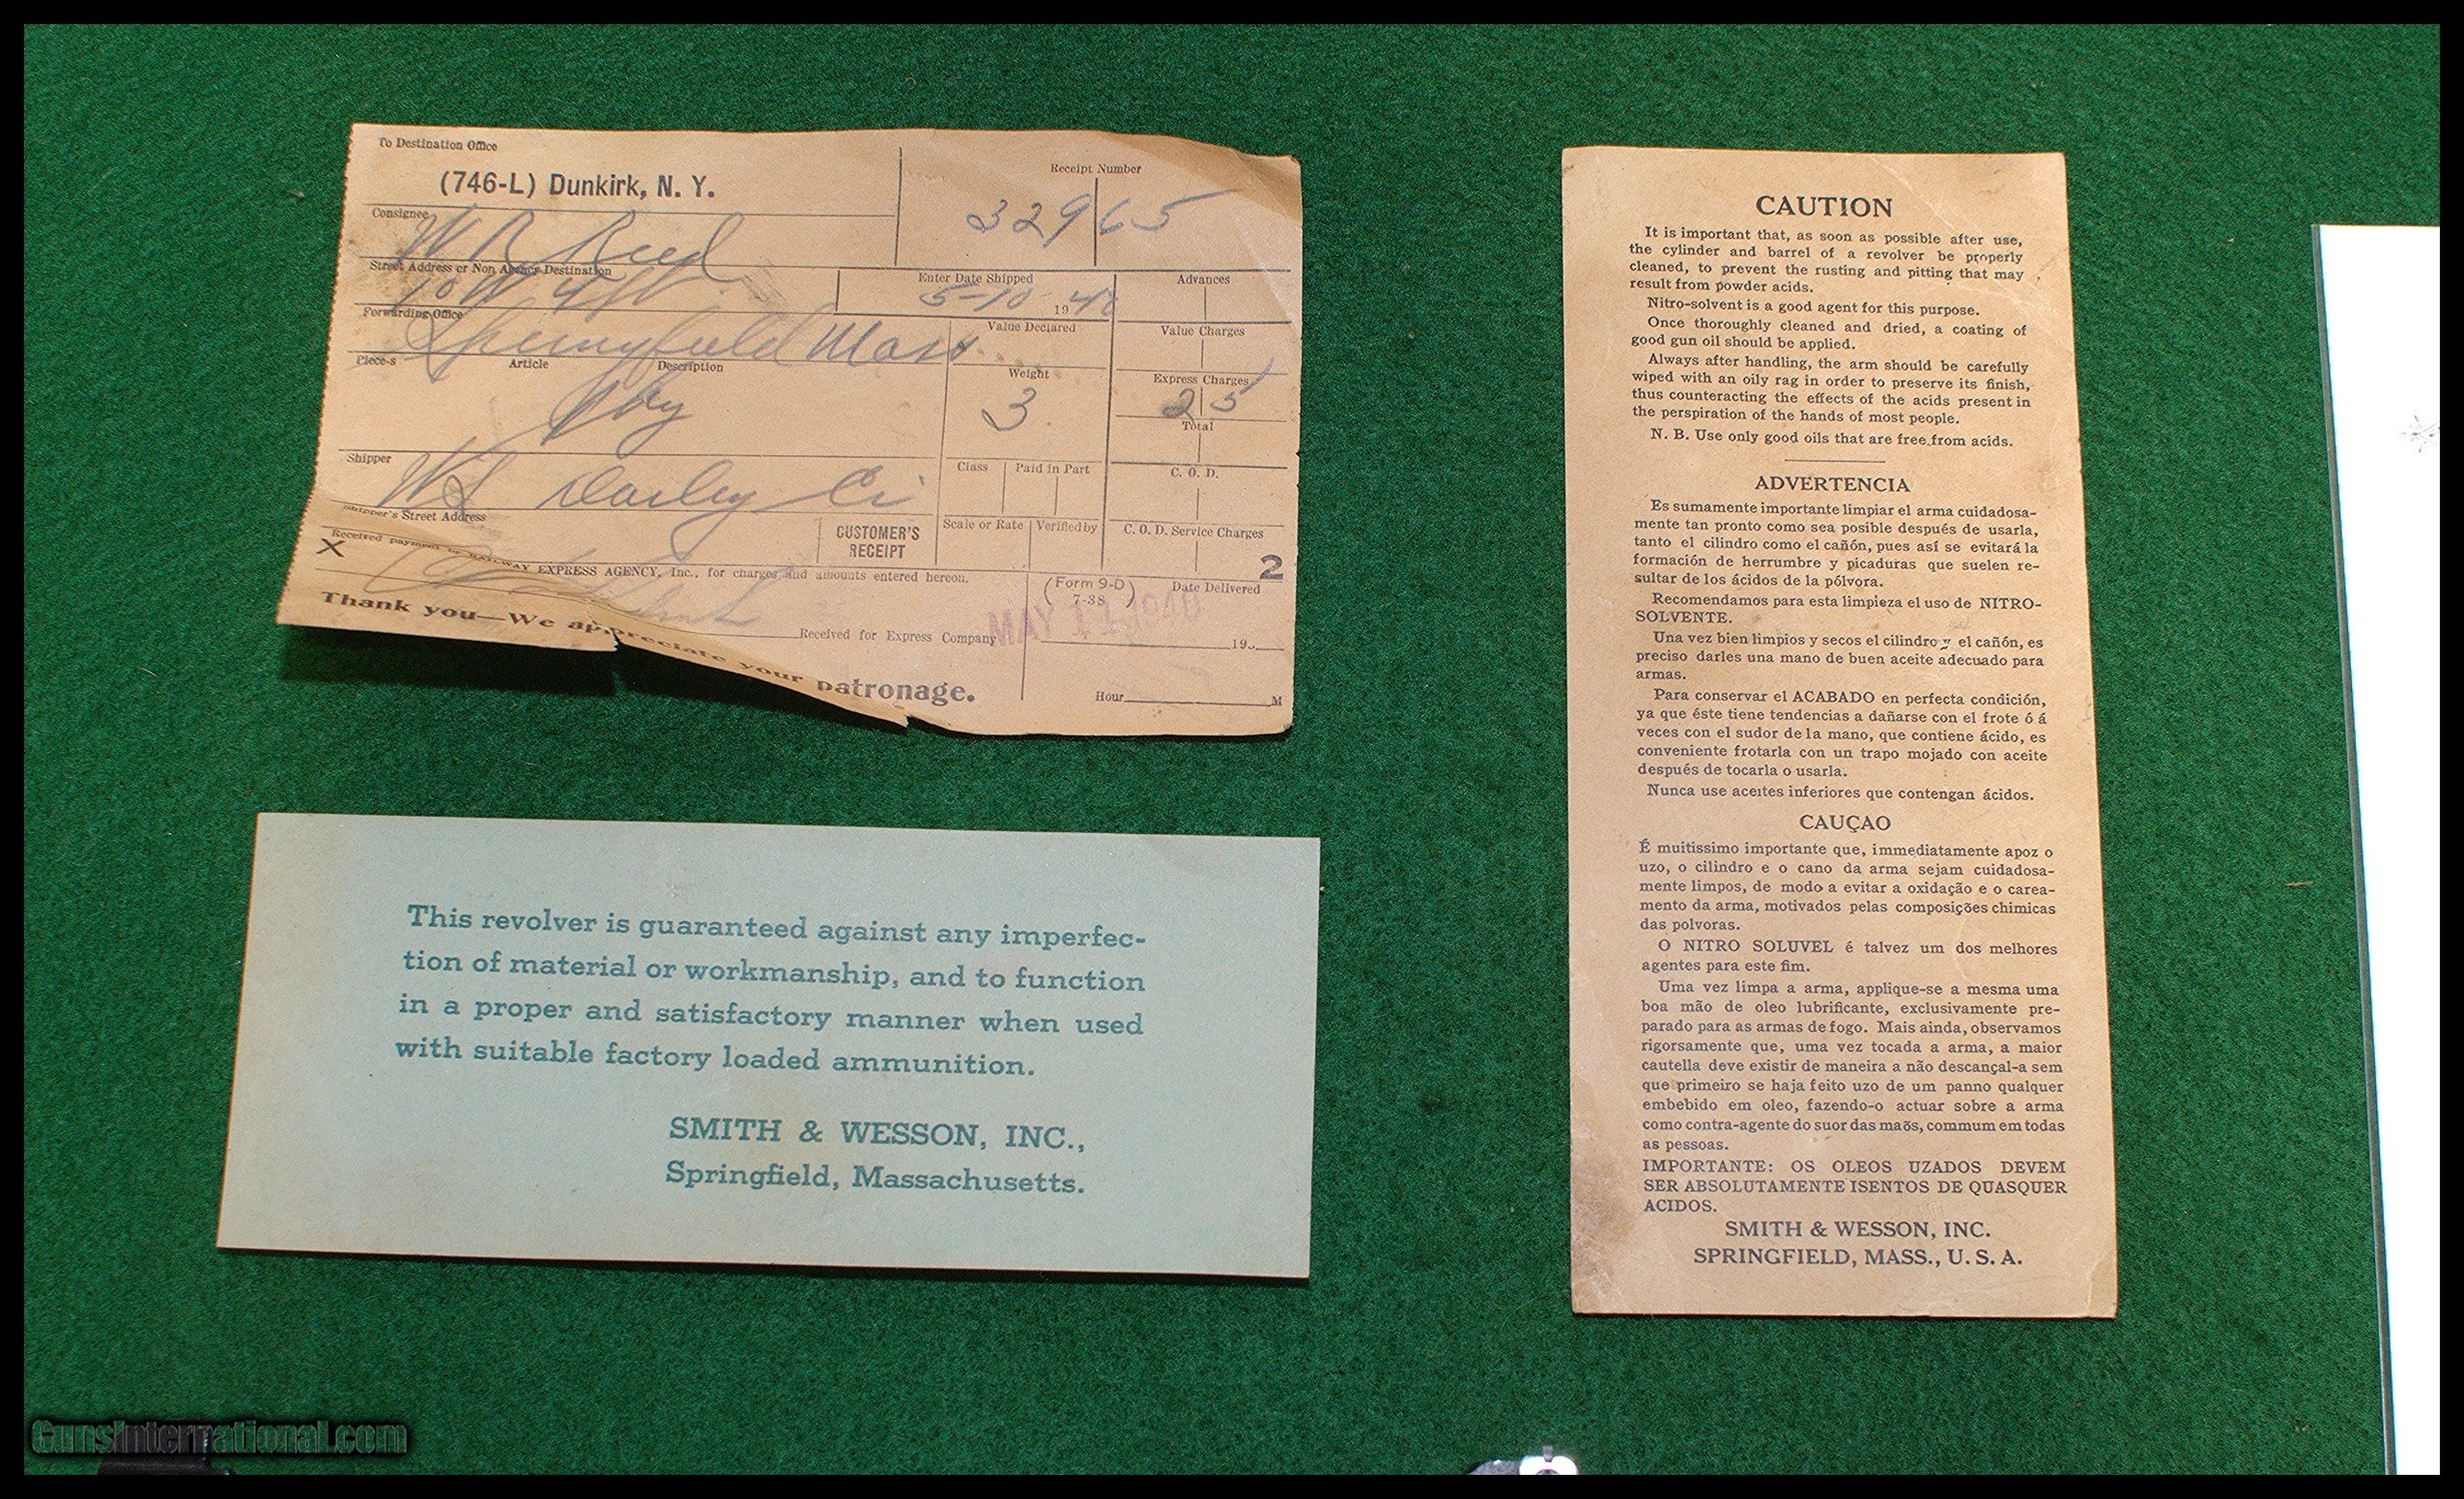 To Destination Office
(746-L) Dunkirk, N. Y.
Receipt Number
32965
Consignee
W R Reed
Street Address or Non Agency Destination
10 W 4th
Enter Date Shipped
5-10 1940
Advances
Forwarding Office
Springfield Mass
Value Declared
Value Charges
Piece-s Article Description
Weight
3
Express Charges
25
Total
Shipper
W S Darley Co
Class Paid in Part
C. O. D.
Shipper's Street Address
CUSTOMER'S
RECEIPT
Scale or Rate Verified by
C. O. D. Service Charges
2
X
Received payment to RAILWAY EXPRESS AGENCY, Inc., for charges and amounts entered hereon.
(Form 9-D)
7-38
Date Delivered
MAY 11 1940
Received for Express Company
19
Thank you—We appreciate your patronage.
Hour M
This revolver is guaranteed against any imperfec-
tion of material or workmanship, and to function
in a proper and satisfactory manner when used
with suitable factory loaded ammunition.
SMITH & WESSON, INC.,
Springfield, Massachusetts.
CAUTION
It is important that, as soon as possible after use,
the cylinder and barrel of a revolver be properly
cleaned, to prevent the rusting and pitting that may
result from powder acids.
Nitro-solvent is a good agent for this purpose.
Once thoroughly cleaned and dried, a coating of
good gun oil should be applied.
Always after handling, the arm should be carefully
wiped with an oily rag in order to preserve its finish,
thus counteracting the effects of the acids present in
the perspiration of the hands of most people.
N. B. Use only good oils that are free from acids.
ADVERTENCIA
Es sumamente importante limpiar el arma cuidadosa-
mente tan pronto como sea posible después de usarla,
tanto el cilindro como el cañón, pues así se evitará la
formación de herrumbre y picaduras que suelen re-
sultar de los ácidos de la pólvora.
Recomendamos para esta limpieza el uso de NITRO-
SOLVENTE.
Una vez bien limpios y secos el cilindro y el cañón, es
preciso darles una mano de buen aceite adecuado para
armas.
Para conservar el ACABADO en perfecta condición,
ya que éste tiene tendencias a dañarse con el frote ó á
veces con el sudor de la mano, que contiene ácido, es
conveniente frotarla con un trapo mojado con aceite
después de tocarla o usarla.
Nunca use aceites inferiores que contengan ácidos.
CAUÇAO
É muitissimo importante que, immediatamente apoz o
uzo, o cilindro e o cano da arma sejam cuidadosa-
mente limpos, de modo a evitar a oxidação e o carea-
mento da arma, motivados pelas composições chimicas
das polvoras.
O NITRO SOLUVEL é talvez um dos melhores
agentes para este fim.
Uma vez limpa a arma, applique-se a mesma uma
boa mão de oleo lubrificante, exclusivamente pre-
parado para as armas de fogo. Mais ainda, observamos
rigorsamente que, uma vez tocada a arma, a maior
cautella deve existir de maneira a não descançal-a sem
que primeiro se haja feito uzo de um panno qualquer
embebido em oleo, fazendo-o actuar sobre a arma
como contra-agente do suor das maõs, commum em todas
as pessoas.
IMPORTANTE: OS OLEOS UZADOS DEVEM
SER ABSOLUTAMENTE ISENTOS DE QUASQUER
ACIDOS.
SMITH & WESSON, INC.
SPRINGFIELD, MASS., U. S. A.
GunsInternational.com